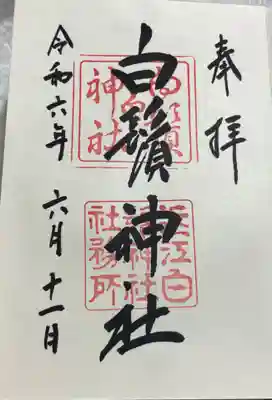 奉拝
白鬚神社
令和六年 六月十一日
白鬚
神社
近江白
鬚神社
社務所